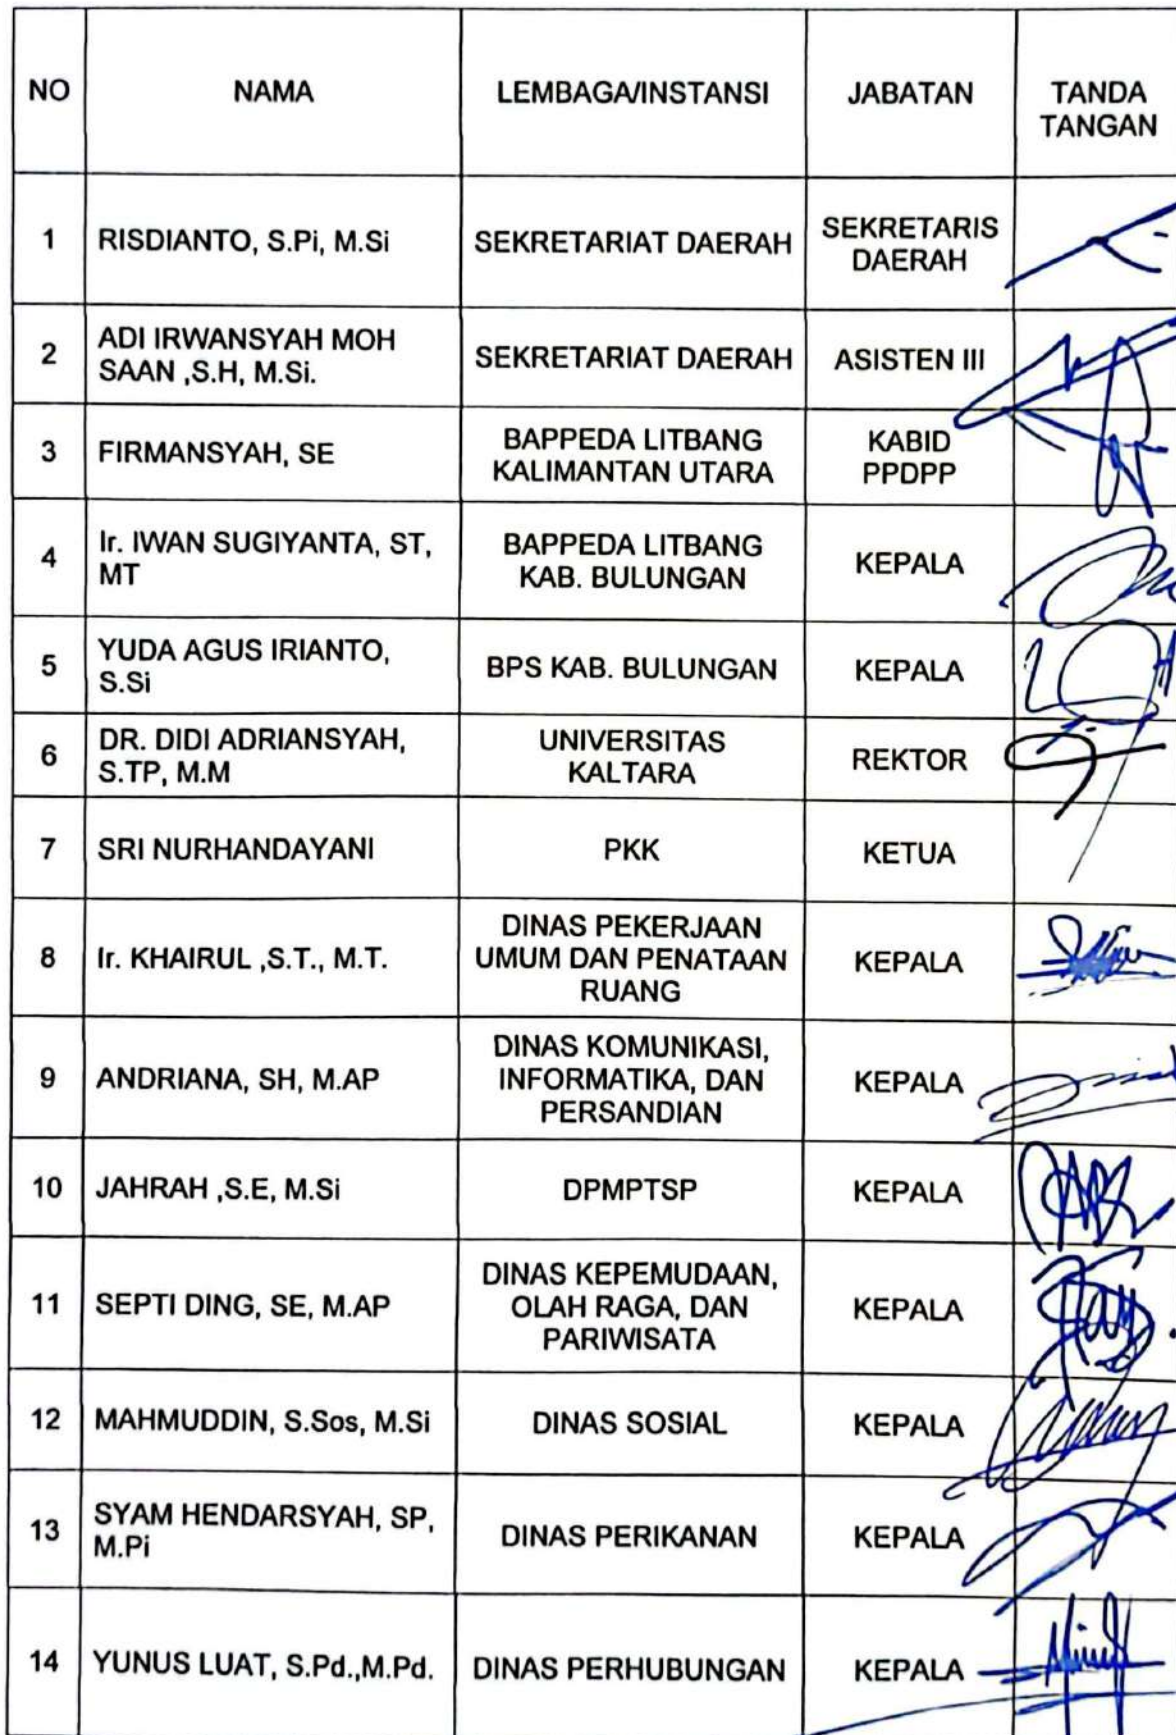 NO NAMA LEMBAGA/INSTANSI JABATAN TANDA
TANGAN
1 RISDIANTO, S.Pi, M.Si SEKRETARIAT DAERAH SEKRETARIS
DAERAH
2 ADI IRWANSYAH MOH
SAAN ,S.H, M.Si.
SEKRETARIAT DAERAH ASISTEN III
3 FIRMANSYAH, SE
BAPPEDA LITBANG
KALIMANTAN UTARA
KABID
PPDPP
4 Ir. IWAN SUGIYANTA, ST,
MT
BAPPEDA LITBANG
KAB. BULUNGAN
KEPALA
5 YUDA AGUS IRIANTO,
S.Si
BPS KAB. BULUNGAN KEPALA
6 DR. DIDI ADRIANSYAH,
S.TP, M.M
UNIVERSITAS
KALTARA
REKTOR
7 SRI NURHANDAYANI PKK KETUA
8 Ir. KHAIRUL ,S.T., M.T.
DINAS PEKERJAAN
UMUM DAN PENATAAN
RUANG
KEPALA
9 ANDRIANA, SH, M.AP
DINAS KOMUNIKASI,
INFORMATIKA, DAN
PERSANDIAN
KEPALA
10 JAHRAH ,S.E, M.Si DPMPTSP KEPALA
11 SEPTI DING, SE, M.AP
DINAS KEPEMUDAAN,
OLAH RAGA, DAN
PARIWISATA
KEPALA
12 MAHMUDDIN, S.Sos, M.Si DINAS SOSIAL KEPALA
13 SYAM HENDARSYAH, SP,
M.Pi
DINAS PERIKANAN KEPALA
14 YUNUS LUAT, S.Pd.,M.Pd. DINAS PERHUBUNGAN KEPALA